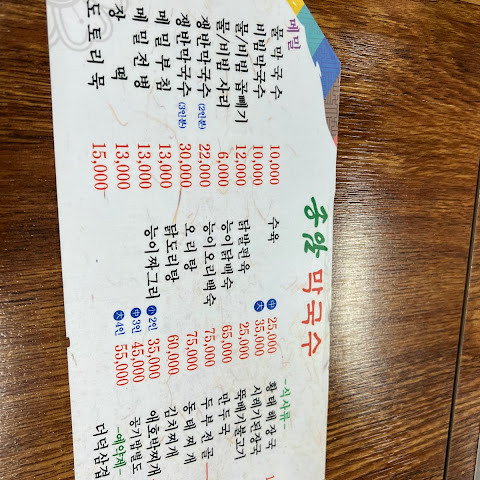 중앙 막국수
메밀
물막국수 10,000
비빔막국수 10,000
물/비빔 곱빼기 12,000
물/비빔 사리 6,000
쟁반막국수 (2인분) 22,000
쟁반막국수 (3인분) 30,000
메밀부침 13,000
메밀전병 13,000
장떡 13,000
도토리묵 15,000
수육 中 25,000
大 35,000
닭발편육 25,000
능이닭백숙 65,000
능이오리백숙 75,000
오리탕 75,000
닭도리탕 60,000
능이짜그리 小 2인 35,000
中 3인 45,000
大 4인 55,000
-식사류-
황태해장국
시레기된장국
뚝배기불고기
만두국
두부전골
동태찌개
김치찌개
애호박찌개
공기밥별도
-예약제-
더덕삼겹